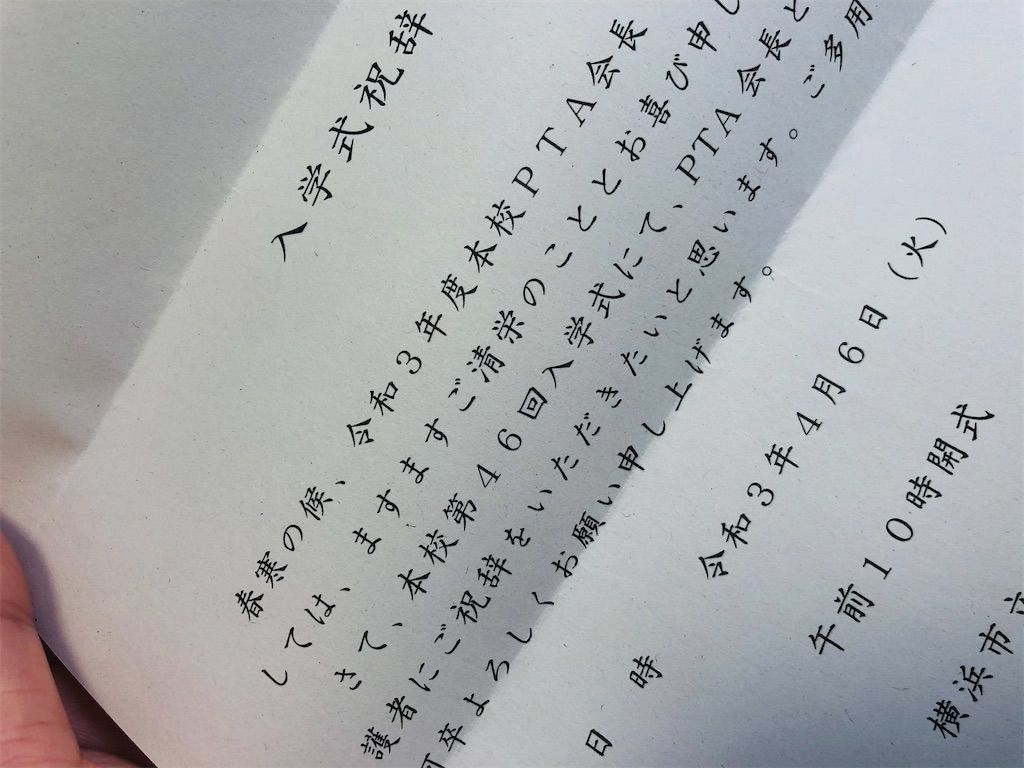 入学式祝辞
春寒の候、令和3年度本校PTA会長
しては、ますますご清栄のこととお喜び申し
さて、本校第46回入学式にて、PTA会長と
護者にご祝辞をいただきたいと思います。ご多用
何卒よろしくお願い申し上げます。
日 時 令和3年4月6日（火）
午前10時開式
横浜市立